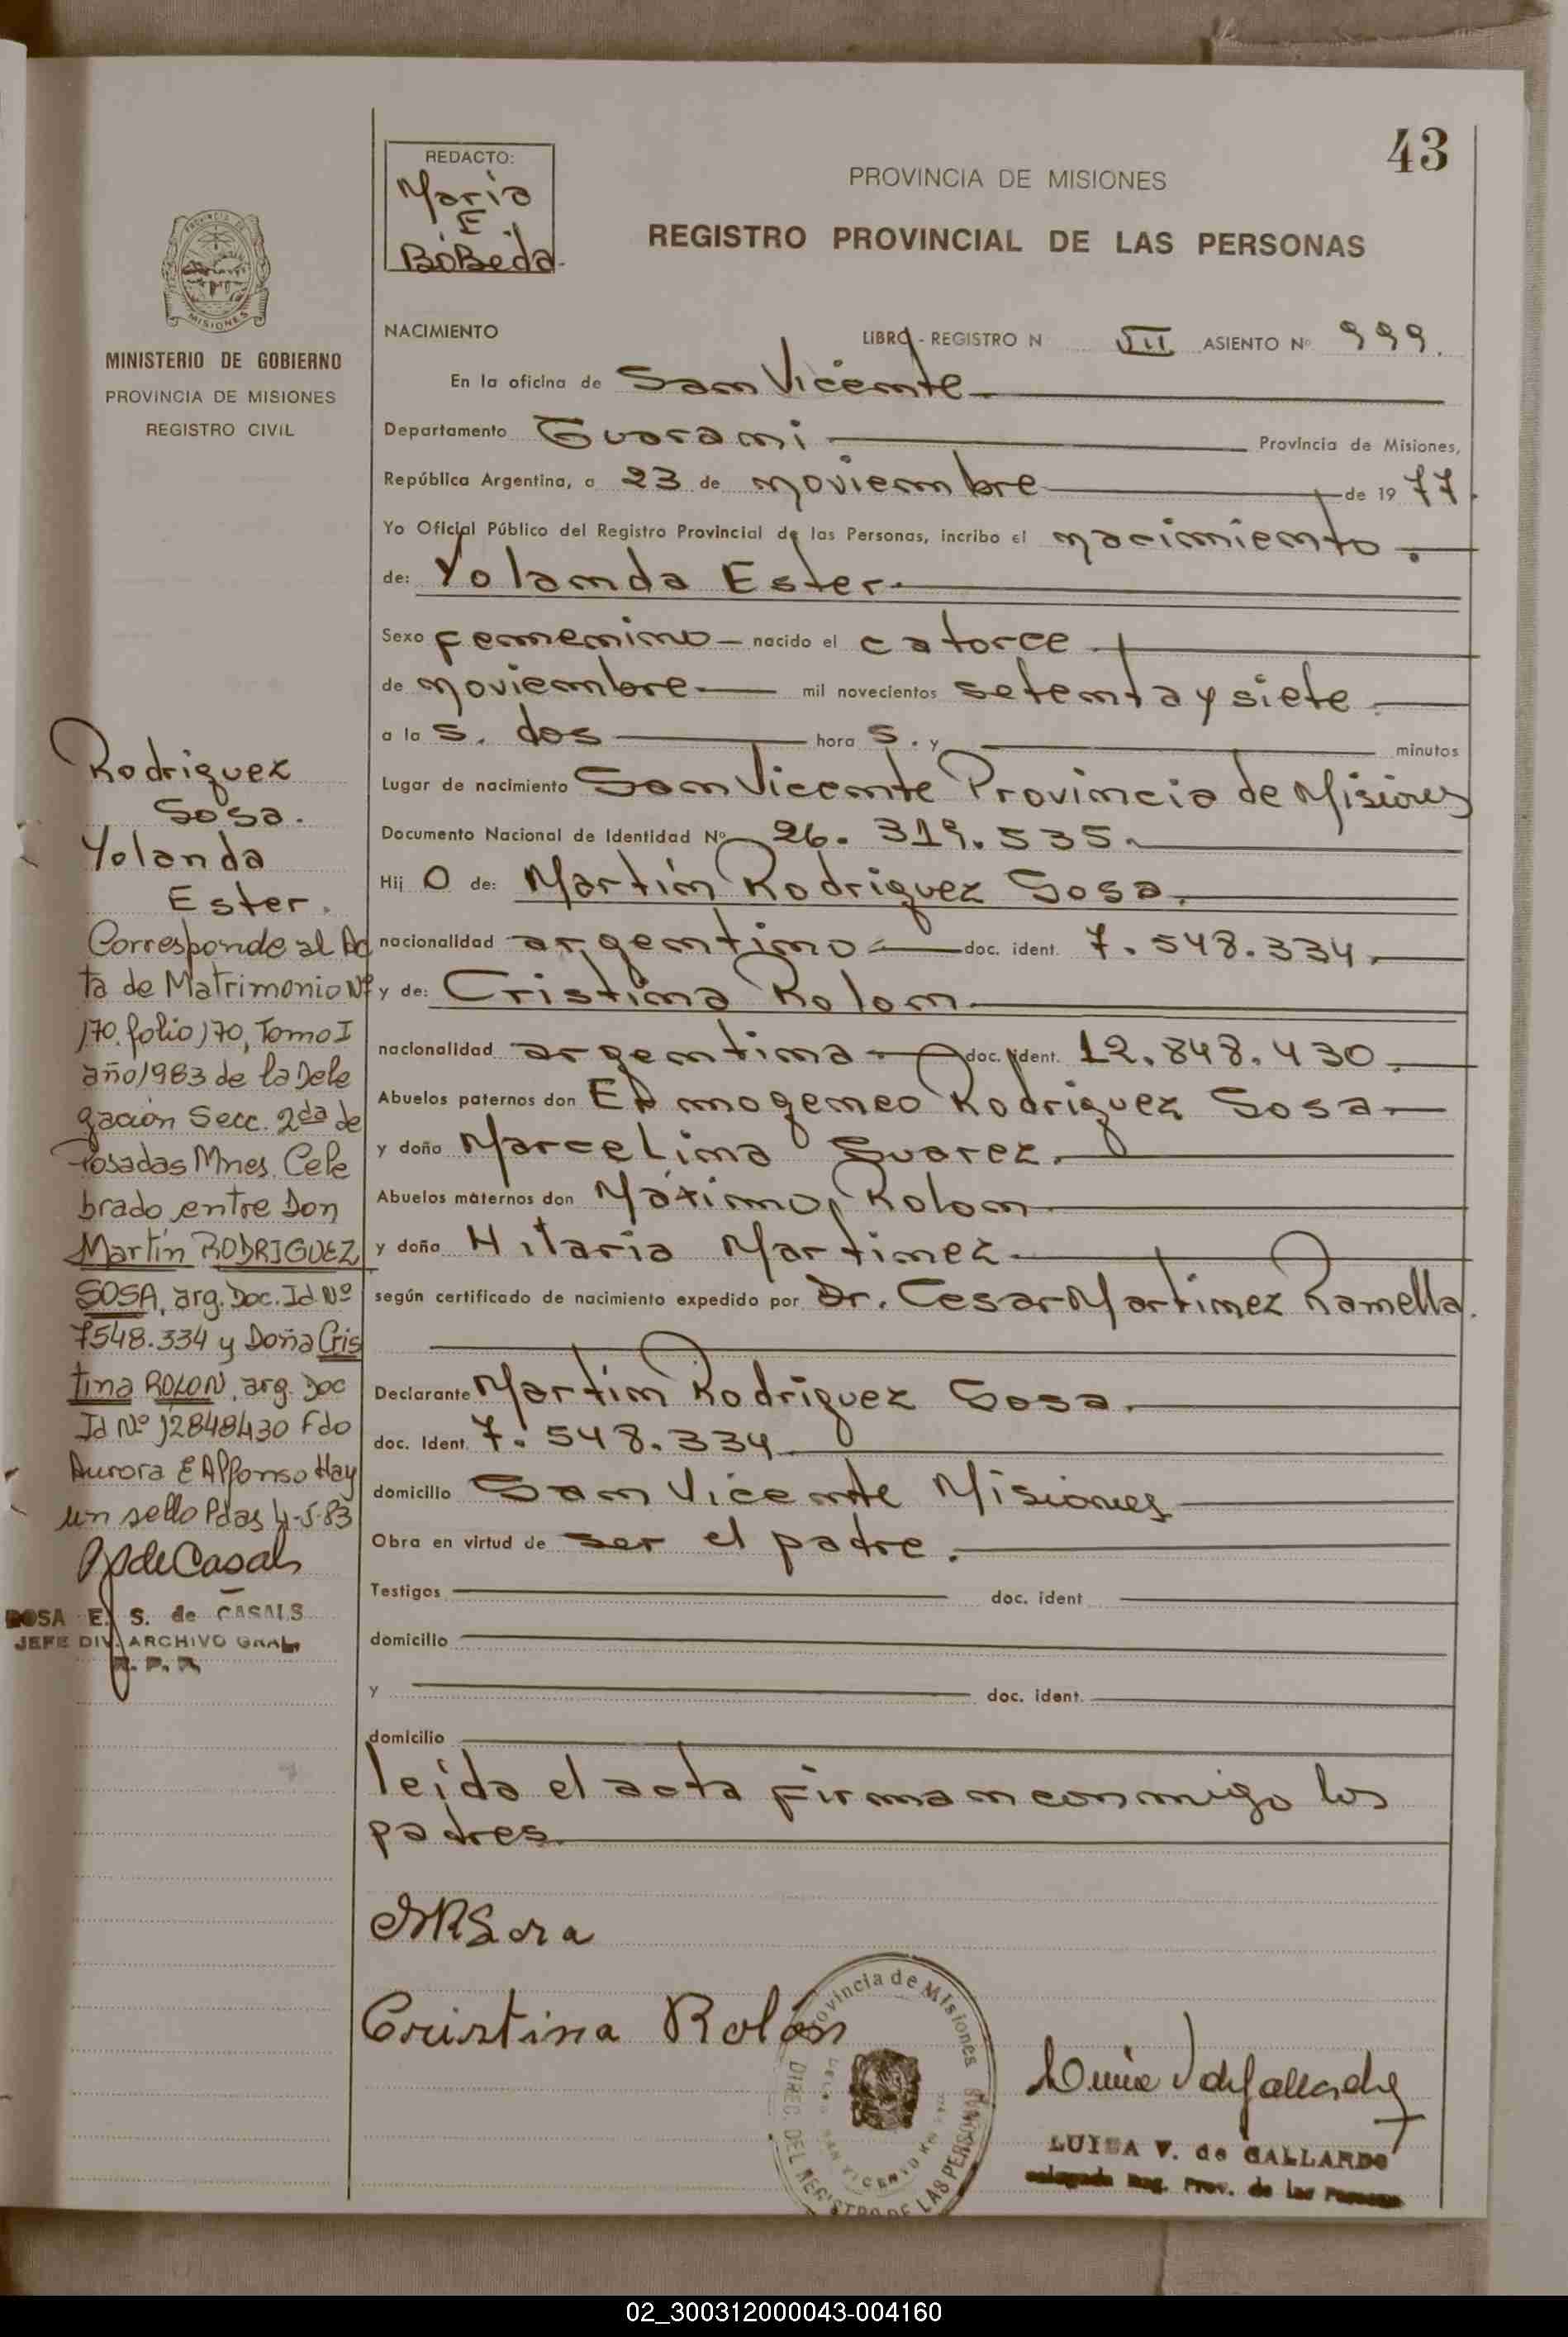 43
REDACTO:
Maria
E.
BóBeda-
PROVINCIA DE MISIONES
REGISTRO PROVINCIAL DE LAS PERSONAS
PROVINCIA DE
MISIONES
MINISTERIO DE GOBIERNO
PROVINCIA DE MISIONES
REGISTRO CIVIL
NACIMIENTO LIBRO - REGISTRO N VII ASIENTO Nº 999.
En la oficina de San Vicente
Departamento Guarani Provincia de Misiones,
República Argentina, a 23 de noviembre de 19 77.
Yo Oficial Público del Registro Provincial de las Personas, incribo el nacimiento.
de: Yolanda Ester.
Sexo femenino nacido el catorce
de noviembre mil novecientos setenta y siete
a la s. dos hora s. y minutos
Lugar de nacimiento San Vicente Provincia de Misiones
Documento Nacional de Identidad Nº 26. 319. 535.
Hij O de: Martín Rodriguez Sosa.
nacionalidad argentino doc. ident. 7. 548. 334.
y de: Cristina Rolon
nacionalidad argentina doc. ident. 12. 848. 430.
Abuelos paternos don Ermogeneo Rodriguez Sosa
y doña Marcelina Suarez.
Abuelos maternos don Máximo Rolon
y doña Hilaria Martinez
según certificado de nacimiento expedido por Dr. Cesar Martinez Ramella.
Declarante Martín Rodriguez Sosa.
doc. Ident. 7. 548. 334
domicilio San Vicente Misiones
Obra en virtud de ser el padre.
Testigos doc. ident
domicilio
y doc. ident.
domicilio
leída el acta firman conmigo los
padres.
Cristina Rolón
Rodriguez
Sosa.
Yolanda
Ester.
Corresponde al Ac
ta de Matrimonio Nº
170. folio 170, Tomo I
año 1983 de la Dele
gación Secc. 2da de
Posadas Mnes. Cele
brado entre Don
Martín RODRIGUEZ
SOSA, arg. Doc. Id Nº
7548.334 y Doña Cris
tina ROLON, arg. Doc
Id Nº 12848430 Fdo
Aurora E Alfonso Hay
un sello Pdas 4-5-83
RdeCasals
ROSA E. S. de CASALS
JEFE DIV. ARCHIVO GRAL.
R. P. P.
Provincia de Misiones
DIREC. DEL REGISTRO DE LAS PERSONAS
SAN VICENTE
LUISA V. de GALLARDO
Delegada Reg. Prov. de las Personas
02_300312000043-004160